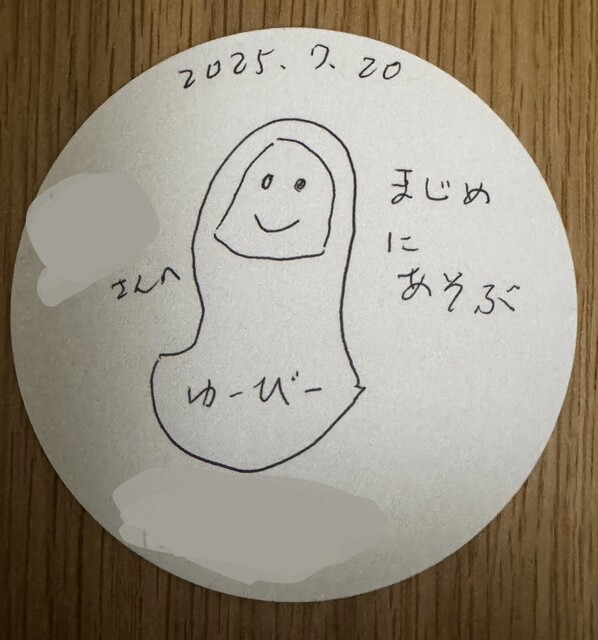 2025.7.20
まじめ
に
あそぶ
さんへ
ゆーびー